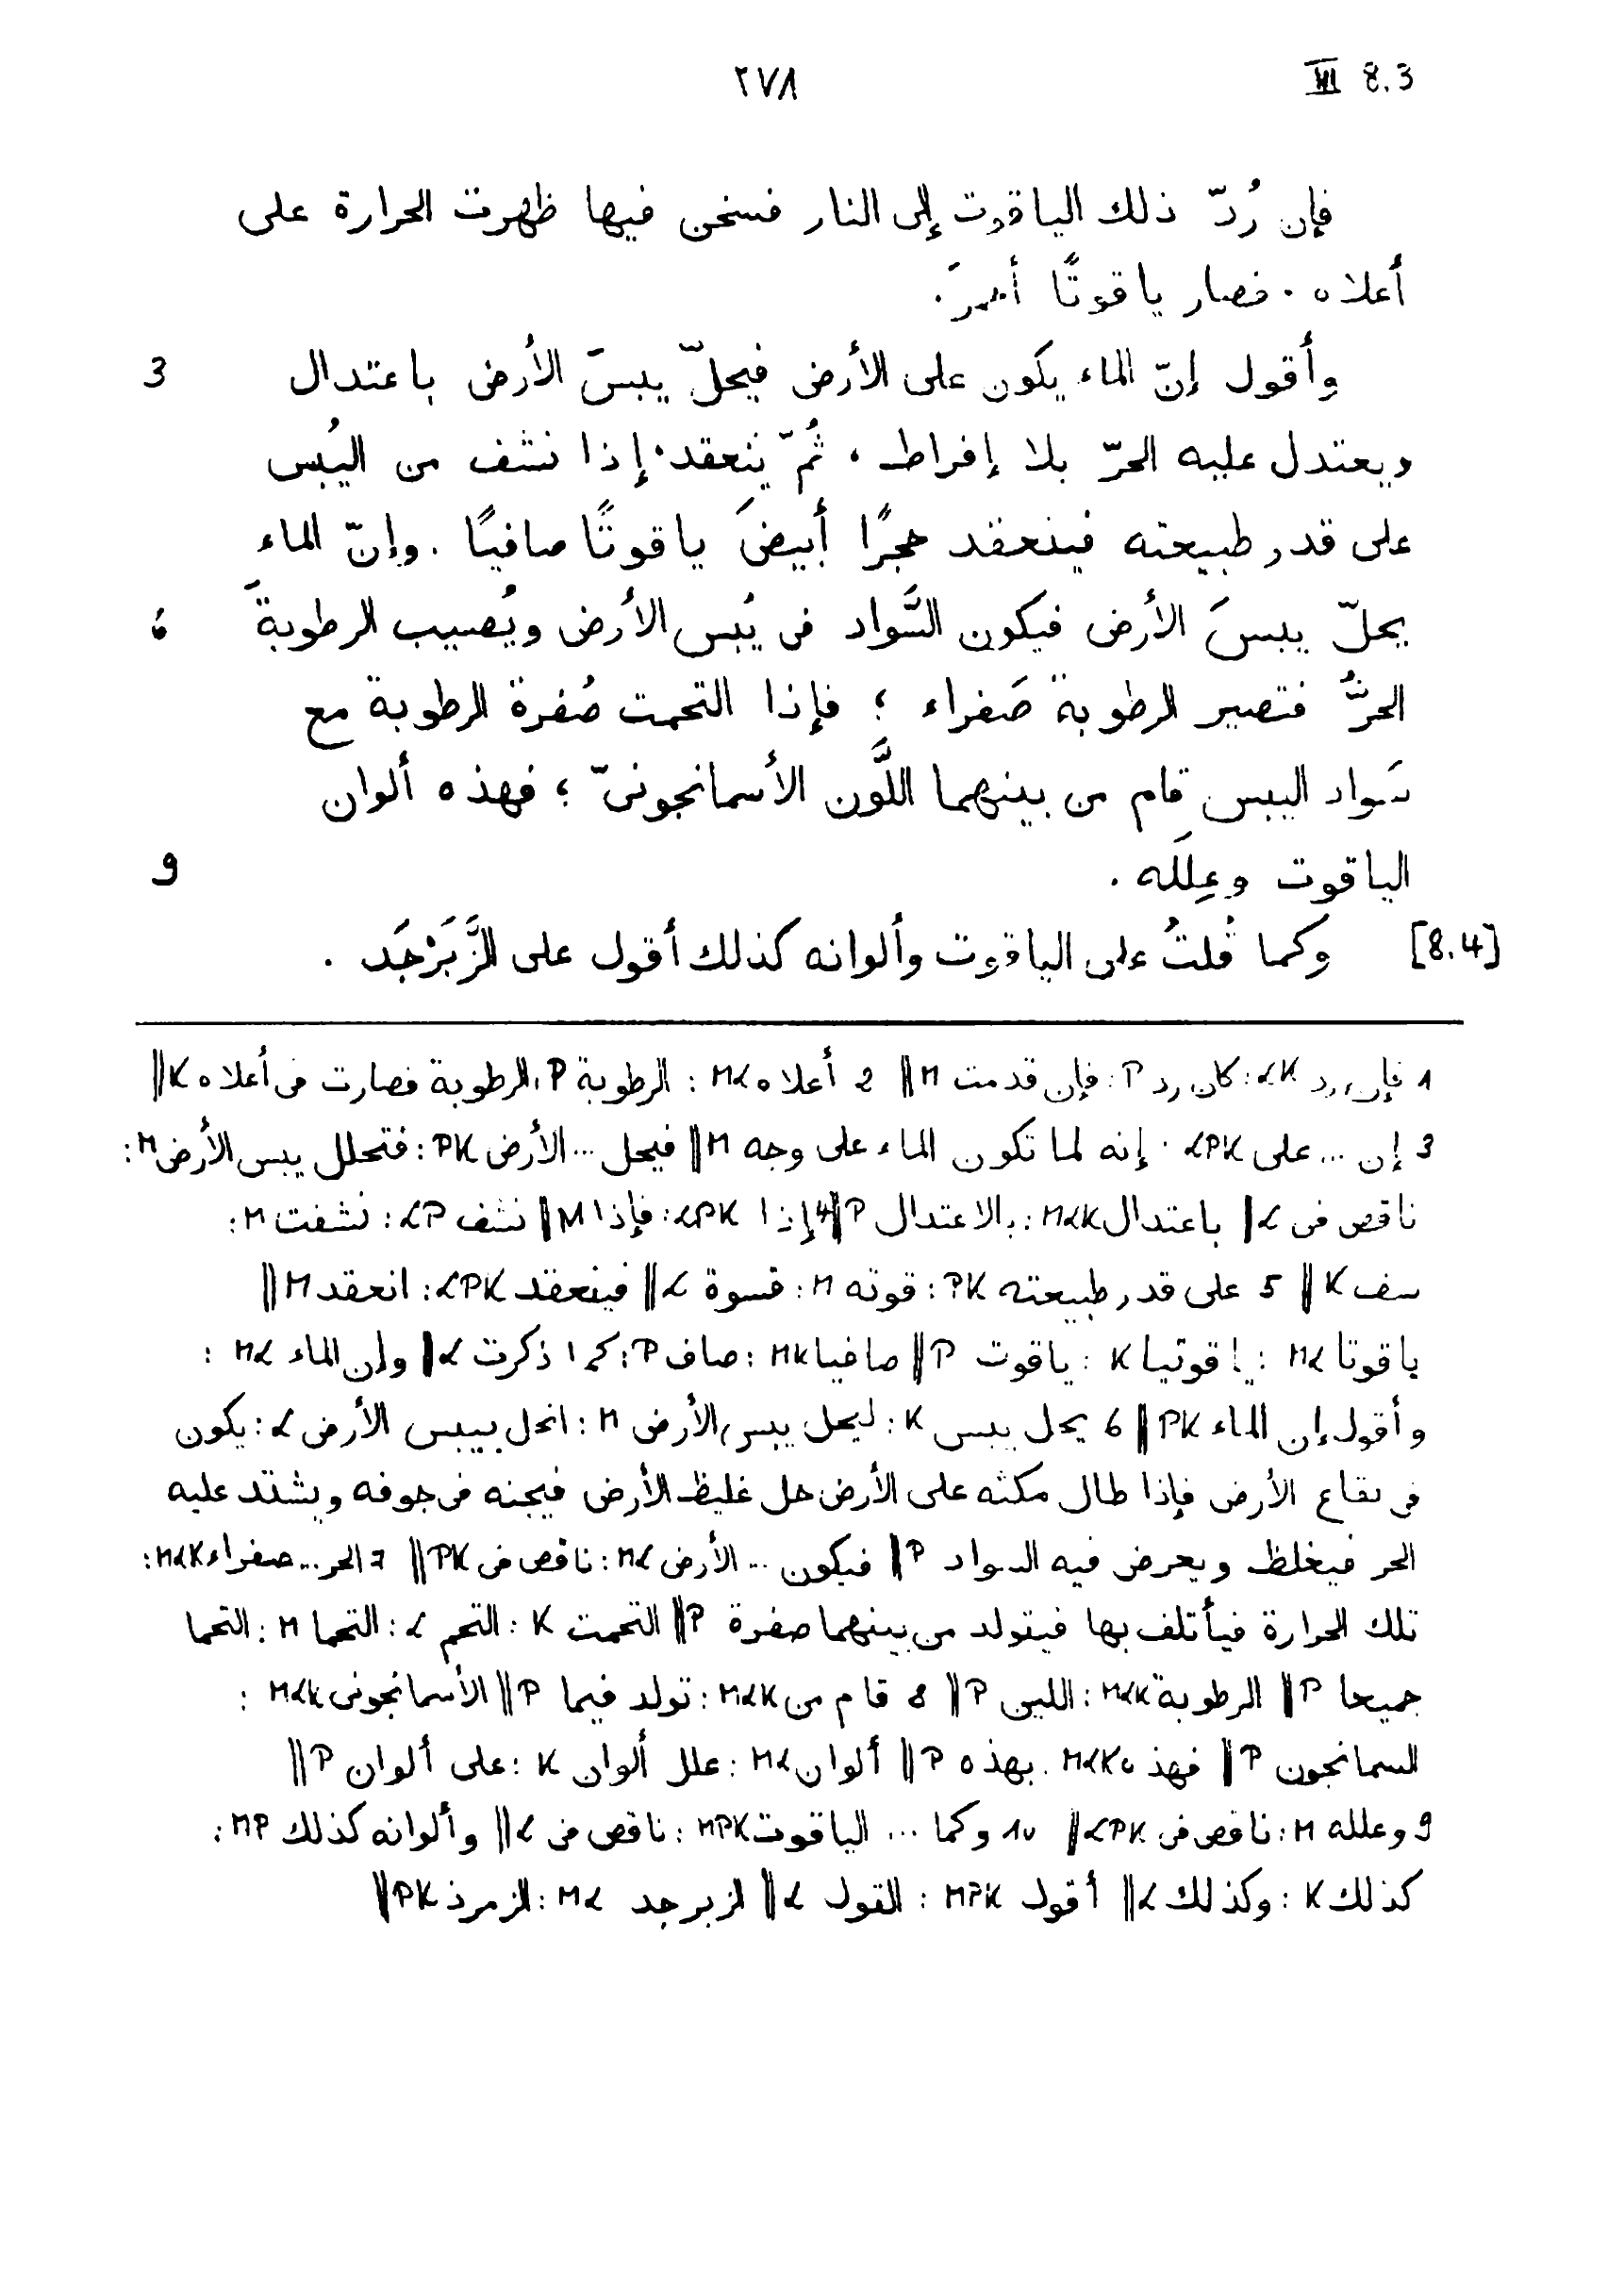 ٢٧٨ III 8.3
فإن رُدّ ذلك الياقوت إلى النار فسخن فيها ظهرت الحرارة على
أعلاه . فصار ياقوتًا أحمرَ .
وأقول إنّ الماء يكون على الأرض فيحلّ يبسَ الأرض باعتدال 3
ويعتدل عليه الحرّ بلا إفراط ، ثُمّ ينعقد . إذا نشف من اليُبس
على قدر طبيعته فينعقد حجرًا أبيضَ ياقوتًا صافيًا . وإنّ الماء
يحلّ يبسَ الأرض فيكون السَّواد في يُبس الأرض ويُصيب الرطوبةَ 6
الحرُّ فتصير الرطوبة صَفراء ؛ فإذا التحمت صُفرة الرطوبة مع
سَواد اليبس قام من بينهما اللَّون الأسمانجونيّ ؛ فهذه ألوان
الياقوت وعِلَله . 9
[8.4] وكما قُلتُ على الياقوت وألوانه كذلك أقول على الزَّبَرْجَد .
1 فإن رد LK : كان رد P : فإن قدمت M || 2 أعلاه ML : الرطوبة P ، الرطوبة فصارت في أعلاه K ||
3 إن ... على LPK . إنه لما تكون الماء على وجه M || فيحل ... الأرض PK : فتحلل يبس الأرض M :
ناقص في L || باعتدال MLK : بالاعتدال P || 4 إذا LPK : فإذا M || نشف LP : نشفت M :
سف K || 5 على قدر طبيعته PK : قوته M : قسوة L || فينعقد LPK : انعقد M ||
ياقوتا ML : ياقوتيا K : ياقوت P || صافيا MK : صاف P : كما ذكرت L || وإن الماء ML :
وأقول إن الماء PK || 6 يحل يبس K : ليحل يبس الأرض M : انحل بيبس الأرض L : يكون
في بقاع الأرض فإذا طال مكثه على الأرض حل غليظ الأرض فيجنه في جوفه ويشتد عليه
الحر فيغلظ ويعرض فيه السواد P || فيكون ... الأرض ML : ناقص في PK || 7 الحر ... صفراء MLK :
تلك الحرارة فيأتلف بها فيتولد من بينهما صفرة P || التحمت K : التحم L : التحما M : التحما
جميعا P || الرطوبة MLK : اللين P || 8 قام من MLK : تولد فيما P || الأسمانجوني MLK :
السمانجون P || فهذه MLK . بهذه P || ألوان ML : علل ألوان K : على ألوان P ||
9 وعلله M : ناقص في LPK || 10 وكما ... الياقوت MPK : ناقص في L || وألوانه كذلك MP :
كذلك K : وكذلك L || أقول MPK : القول L || الزبرجد ML : الزمرذ PK ||